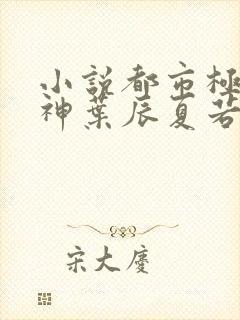 小說都市極
神葉辰夏若
宋大慶